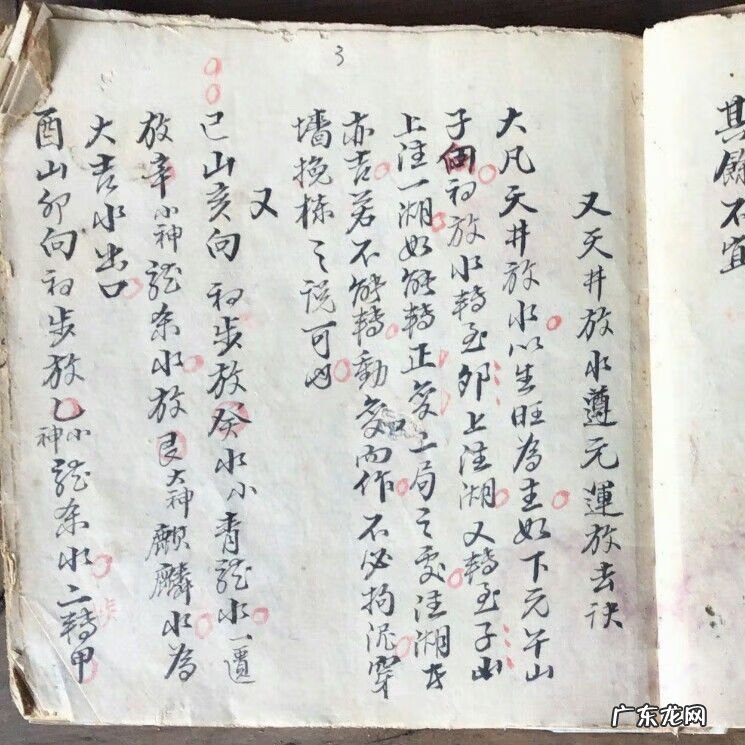 其餘不宜
3
又天井放水遵元運放去訣
大凡天井放水以生旺為主如下元午山
子向初放水轉至卯上注湖又轉至子山
上注一湖如能轉正変二局之変注湖者
亦吉若不能轉動変而作不必拘泥穿
墻挽棟之説可也
又
巳山亥向初步放癸水小青龍水一還
放辛小神龍条水放艮大神麒麟水為
大吉水出口
酉山卯向初步放乙小神龍条水二轉甲
广东龙网